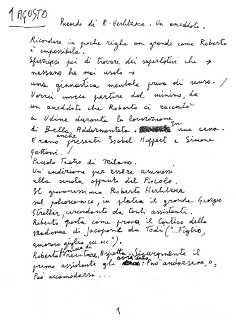 1 AGOSTO
Ricordo di R. Herlitzka. Un aneddoto.
Ricordare in poche righe un grande come Roberto
è impossibile.
Sforzarsi poi di trovare dei superlativi che
nessuno ha mai usato
una ginnastica mentale priva di senso. /
Vorrei invece partire dal minimo, da
un aneddoto che Roberto ci raccontò
a Udine durante la lavorazione
di Bella Addormentata. In una cena.
Erano anche presenti Isabel Huppert e Simone
Gattoni. /
Piccolo Teatro di Milano.
Un'audizione per essere ammesso
alla scuola appunto del Piccolo.
Il giovanissimo Roberto Herlitzka
sul palcoscenico, in platea il grande Giorgio
Strehler, circondato da tanti assistenti.
Roberto porta come prova il Cantico della
Madonna di Jacopone da Todi ("... Figlio,
amoroso giglio ecc. ecc.").
Roberto finisce. Aspetta. Silenzio.
primo assistente gli : Può andarsene, o,
Può accomodarsi...
1